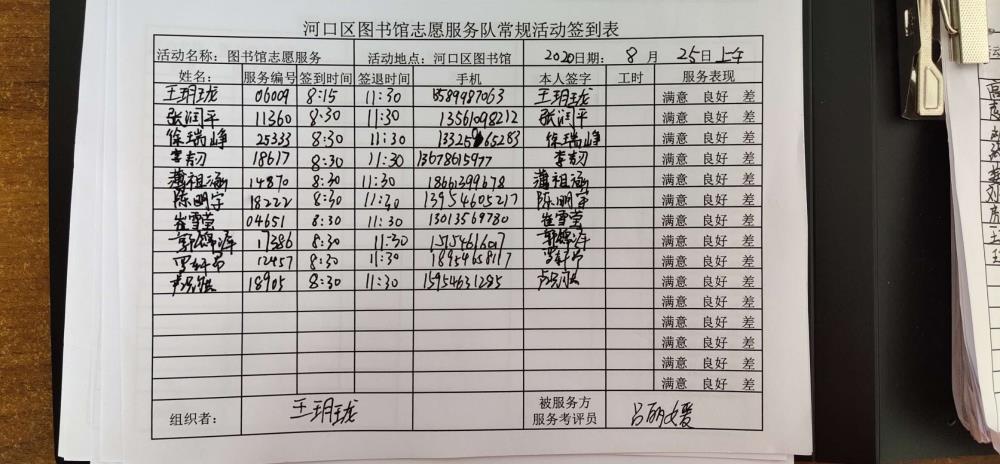 河口区图书馆志愿服务队常规活动签到表
活动名称：图书馆志愿服务 活动地点：河口区图书馆 2020日期： 8 月 25日 上午
姓名： 服务编号 签到时间 签退时间 手机 本人签字 工时 服务表现
王玥珑 06009 8:15 11:30 8589987063 王玥珑 满意 良好 差
张润平 11360 8:30 11:30 13561098212 张润平 满意 良好 差
徐瑞峥 25333 8:30 11:30 徐瑞峥 满意 良好 差
李韧 18617 8:30 11:30 13678615977 李韧 满意 良好 差
蒲祖涵 14870 8:30 11:30 18661399678 蒲祖涵 满意 良好 差
陈明宇 18222 8:30 11:30 13954605217 陈明宇 满意 良好 差
崔雪莹 04651 8:30 11:30 13013569780 崔雪莹 满意 良好 差
郭 17386 8:30 11:30 郭 满意 良好 差
罗轩昂 12457 8:30 11:30 18954658117 罗轩昂 满意 良好 差
18905 8:30 11:30 15954631285 满意 良好 差
满意 良好 差
满意 良好 差
满意 良好 差
满意 良好 差
满意 良好 差
组织者： 王玥珑 被服务方 吕丽媛
服务考评员